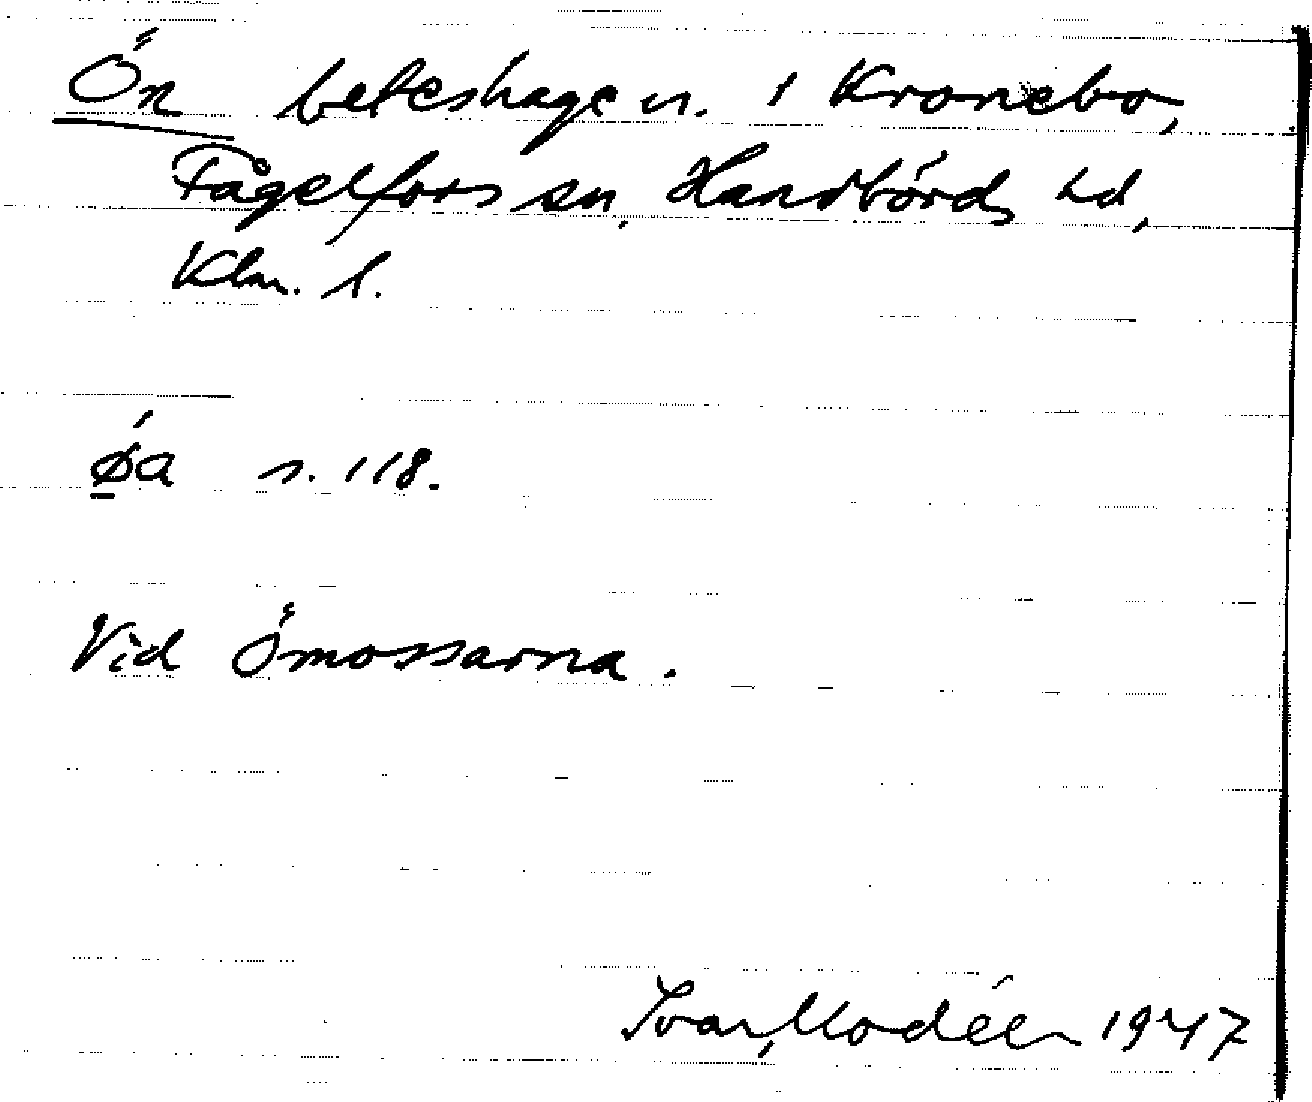 Ön beteshage n. i Kronebo,
Fågelfors sn, Handbörds hd,
Klm. l.
ǿa s. 118.
Vid Ömossarna.
Ivar Modéer 1947